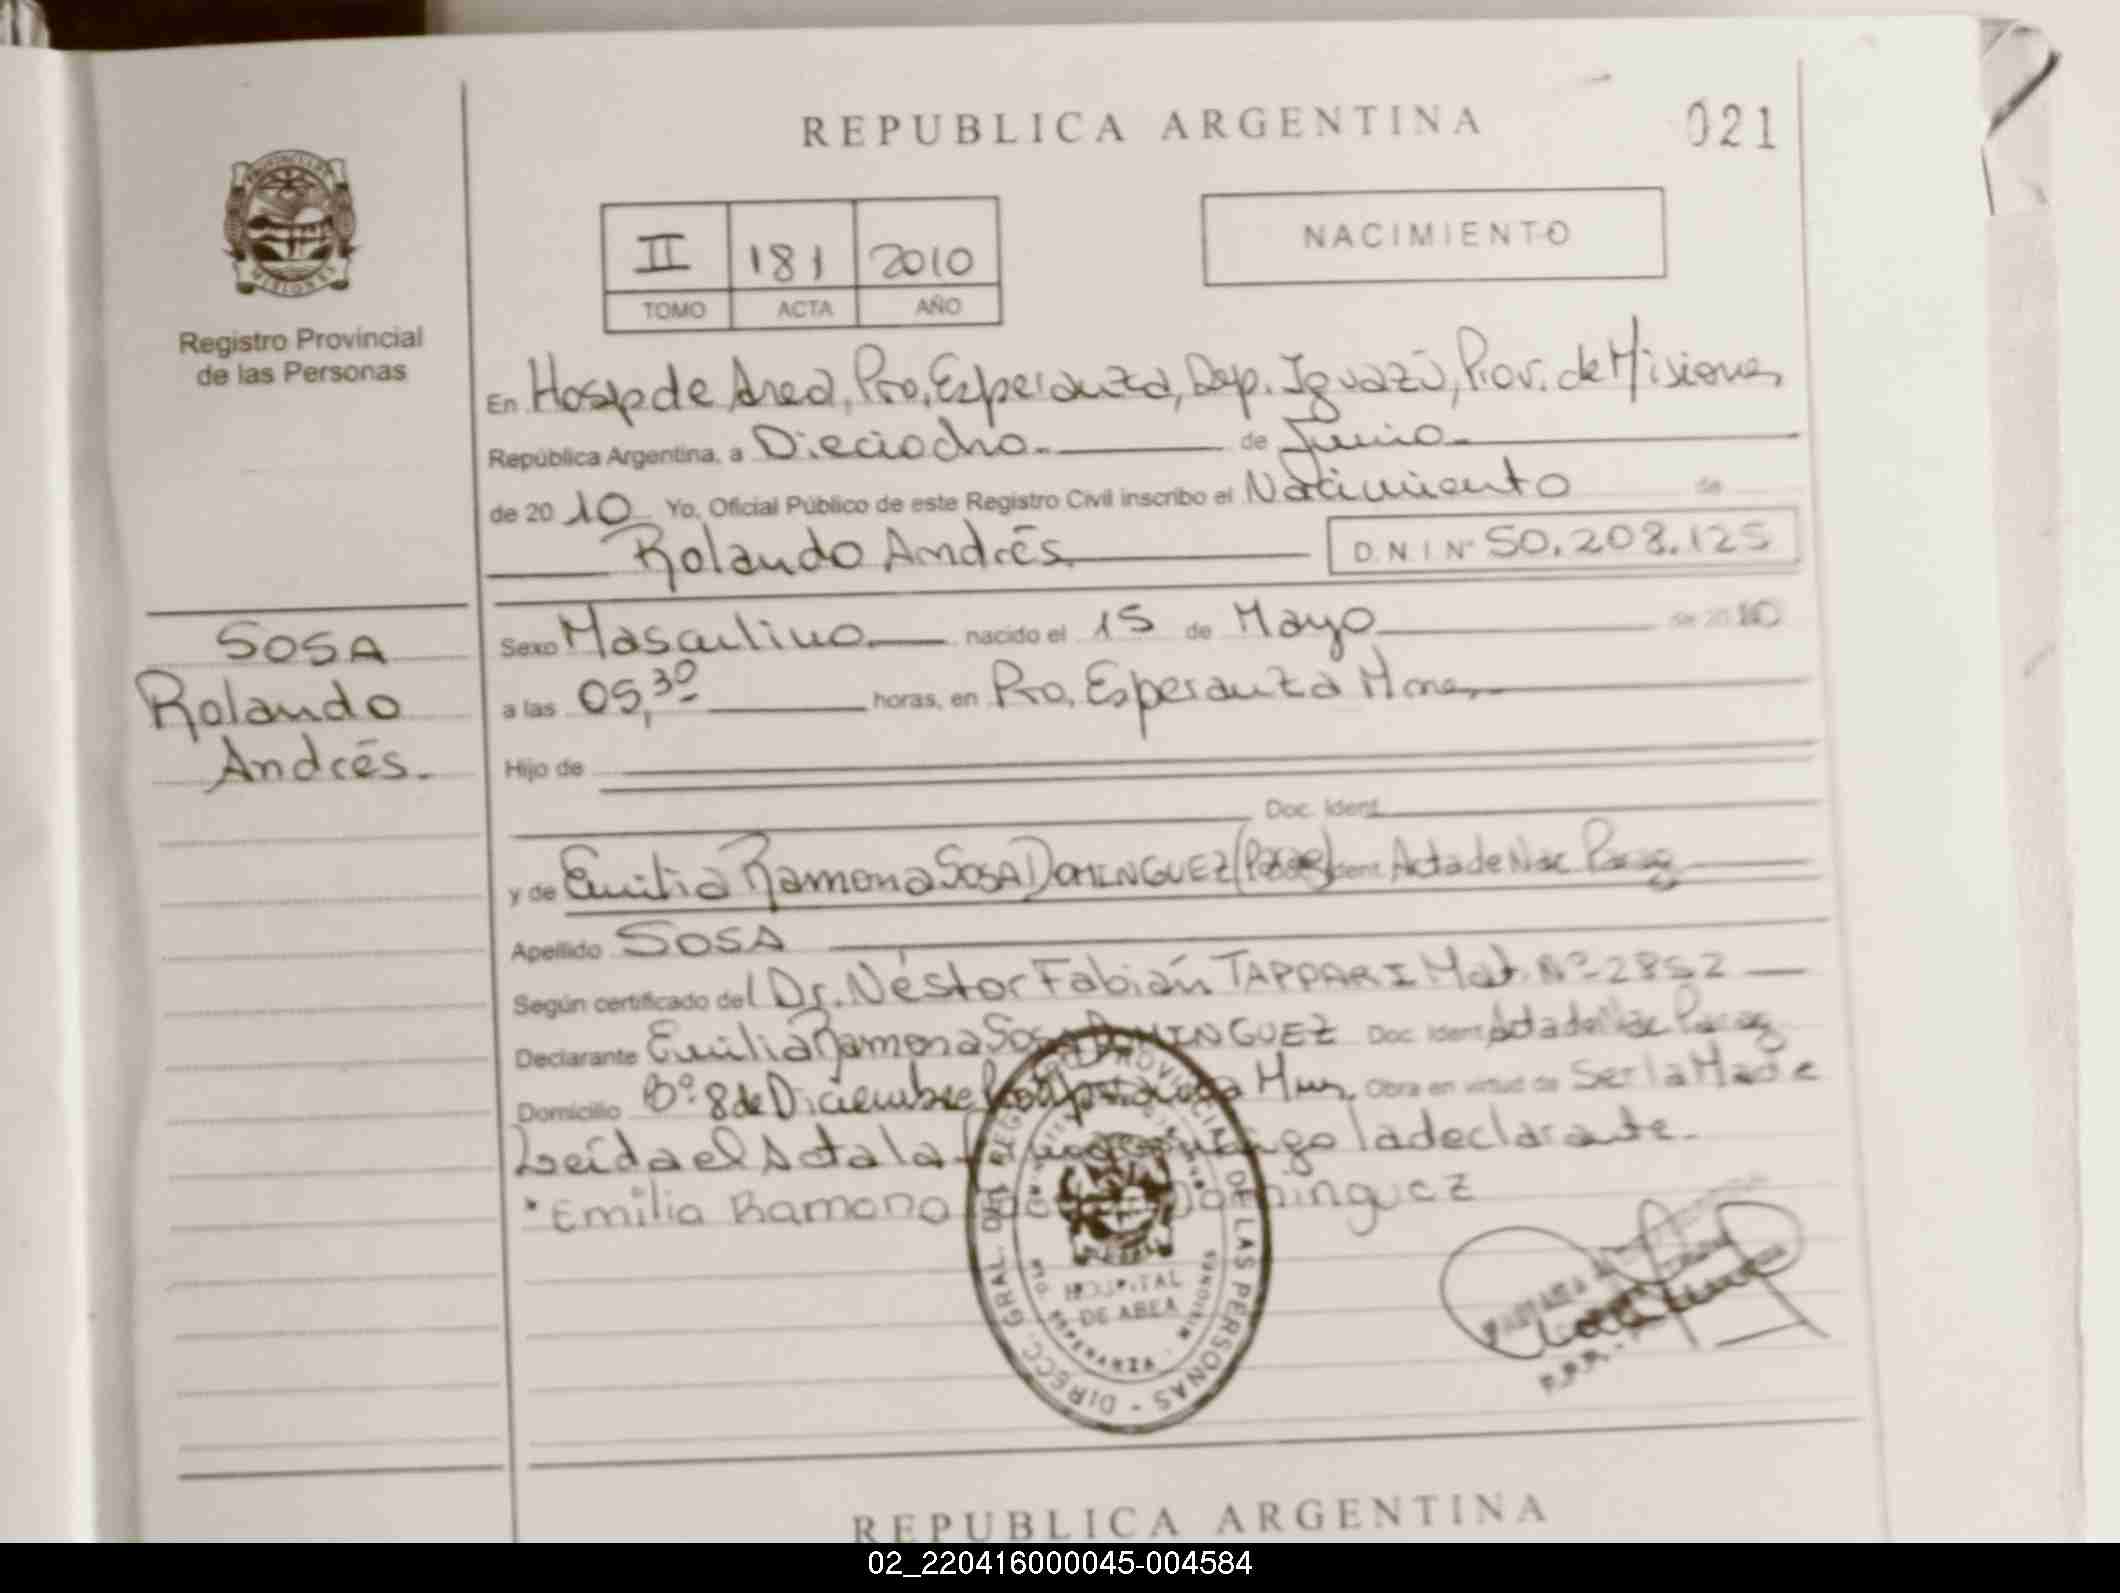 REPUBLICA ARGENTINA
021
II 181 2010
TOMO ACTA AÑO
NACIMIENTO
PROVINCIA DE
MISIONES
Registro Provincial
de las Personas
En Hosp de Area, Pto, Esperanza, Dep. Iguazú, Prov. de Misiones
República Argentina, a Dieciocho. de Junio
de 20 10 Yo, Oficial Público de este Registro Civil inscribo el Nacimiento de
Rolando Andrés
D.N.I Nº 50.208.125
SOSA
Rolando
Andrés.
Sexo Masculino nacido el 15 de Mayo de 2010
a las 05,30 horas, en Pto, Esperanza Mnes,
Hijo de
Doc. Ident.
y de Emilia Ramona SOSA DOMINGUEZ Ident. Acta de Nac Parag
Apellido SOSA
Según certificado del Dr. Néstor Fabián TAPPARI Mat. Nº 2852
Declarante Emilia Ramona SOSA DOMINGUEZ Doc. Ident Acta de Nac Parag
Domicilio Bº 8 de Diciembre Obra en virtud de Ser la Madre
Leída el Acta la firma conmigo la declarante.
Emilia Ramona Dominguez
DIRECC. GRAL. DEL REGISTRO PROVINCIAL DE LAS PERSONAS
HOSPITAL
DE AREA
PTO. ESPERANZA
REPUBLICA ARGENTINA
02_220416000045-004584